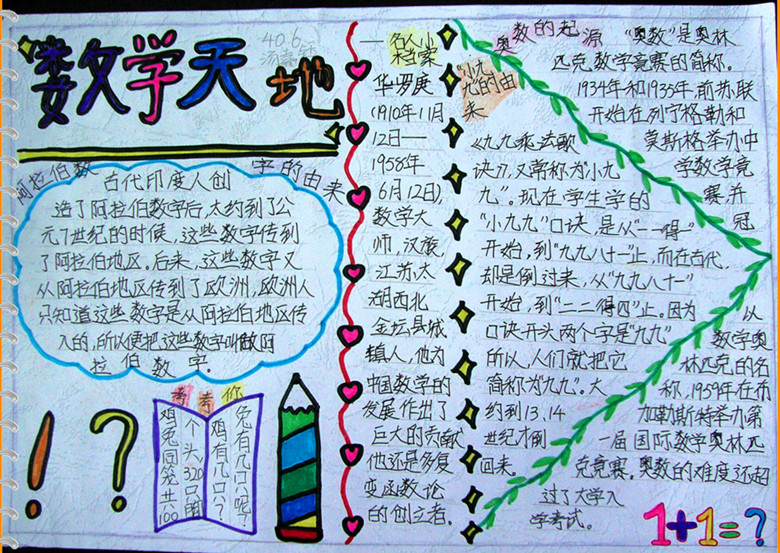 数学天地
40.6
阿拉伯数字的由来
古代印度人创
造了阿拉伯数字后,太约到了公
元7世纪的时候,这些数字传到
了阿拉伯地区。后来,这些数字又
从阿拉伯地区传到了欧洲,欧洲人
只知道这些数字是从阿拉伯地区传
入的,所以便把这些数字叫做阿
拉伯数字。
考考你
鸡兔同笼共100
个头,320只脚
鸡有几只?
兔有几只呢?
名人小
档案
华罗庚
(1910年11月
12日—
1958年
6月12日),
数学大
师,汉族,
江苏太
湖西北
金坛县城
镇人,他为
中国数学的
发展作出了
巨大的贡献
他还是多复
变函数论
的创立者。
“小九
九”的由
来
《九九乘法歌
诀》,又常称为“小九
九”。现在学生学的
“小九九”口诀,是从“一一得一”
开始,到“九九八十一”止,而在古代,
却是倒过来,从“九九八十一”
开始,到“二二得四”止。因为
口诀开头两个字是“九九”
所以,人们就把它
简称为“九九”。大
约到13、14
世纪才倒
回来。
奥数的起源
“奥数”是奥林
匹克数学竞赛的简称。
1934年和1935年,前苏联
开始在列宁格勒和
莫斯格举办中
学数学竞
赛,并
冠
以
数学奥
林匹克的名
称,1959年在布
加勒斯特举办第
一届国际数学奥林匹
克竞赛。奥数的难度还超
过了大学入
学考试。
1+1=?